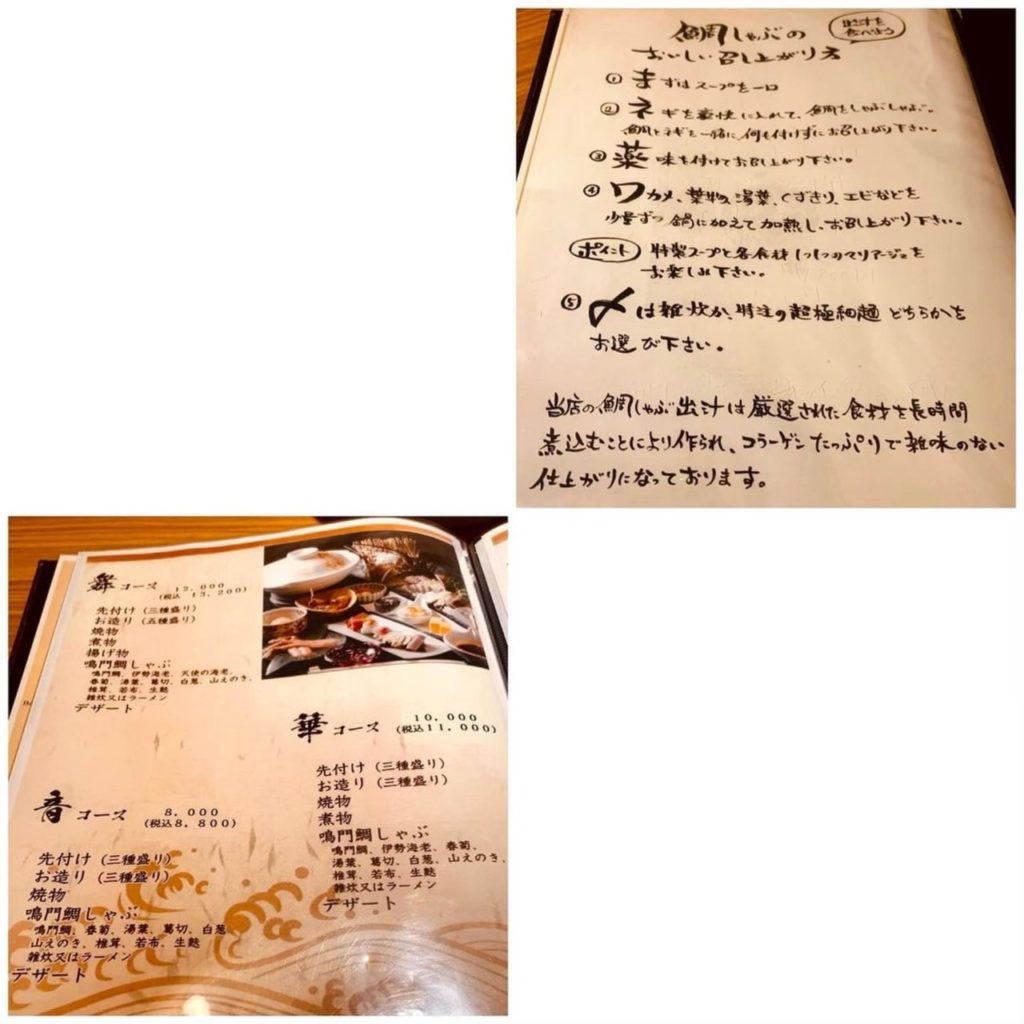 鯛しゃぶの
おいしい召し上がり方
① まずはスープを一口
② ネギを豪快に入れて、鯛をしゃぶしゃぶ。
鯛とネギを一緒に何も付けずにお召し上がり下さい。
③ 薬味を付けてお召し上がり下さい。
④ ワカメ、葉物、湯葉、くずきり、エビなどを
少量ずつ鍋に加えて加熱し、お召し上がり下さい。
ポイント 特製スープと各食材1つ1つのマリアージュを
お楽しみ下さい。
⑤ 〆は雑炊か、特注の超極細麺どちらかを
お選び下さい。
当店の鯛しゃぶ出汁は厳選された食材を長時間
煮込むことにより作られ、コラーゲンたっぷりで雑味のない
仕上がりになっております。
舞コース 12,000
(税込 13,200)
先付け(三種盛り)
お造り(五種盛り)
焼物
煮物
揚げ物
鳴門鯛しゃぶ
鳴門鯛、伊勢海老、天使の海老、
春菊、湯葉、葛切、白葱、山えのき、
椎茸、若布、生麩
雑炊又はラーメン
デザート
華コース 10,000
(税込11,000)
先付け(三種盛り)
お造り(三種盛り)
焼物
煮物
鳴門鯛しゃぶ
鳴門鯛、伊勢海老、春菊、
湯葉、葛切、白葱、山えのき、
椎茸、若布、生麩
雑炊又はラーメン
デザート
音コース 8,000
(税込8,800)
先付け(三種盛り)
お造り(三種盛り)
焼物
鳴門鯛しゃぶ
鳴門鯛、春菊、湯葉、葛切、白葱
山えのき、椎茸、若布、生麩
雑炊又はラーメン
デザート